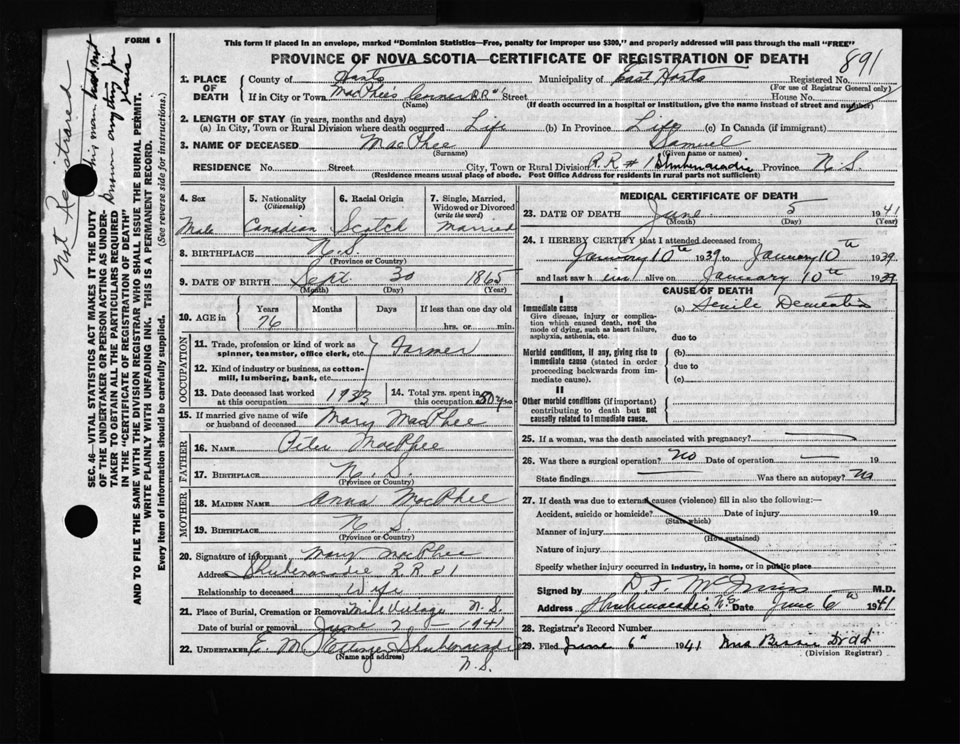 FORM 6
Not Registered
this man had not
Drawn anything for
years
SEC. 46—VITAL STATISTICS ACT MAKES IT THE DUTY
OF THE UNDERTAKER OR PERSON ACTING AS UNDER-
TAKER TO OBTAIN ALL THE PARTICULARS REQUIRED
IN THE "CERTIFICATE OF REGISTRATION OF DEATH"
AND TO FILE THE SAME WITH THE DIVISION REGISTRAR WHO SHALL ISSUE THE BURIAL PERMIT.
WRITE PLAINLY WITH UNFADING INK. THIS IS A PERMANENT RECORD.
Every item of information should be carefully supplied. (See reverse side for instructions.)
This form if placed in an envelope, marked "Dominion Statistics—Free, penalty for improper use $300," and properly addressed will pass through the mail "FREE"
PROVINCE OF NOVA SCOTIA—CERTIFICATE OF REGISTRATION OF DEATH
891
1. PLACE OF DEATH County of Hants Municipality of East Hants Registered No.
(For use of Registrar General only)
If in City or Town MacPhee's Corner R.R. Street House No.
(Name) (If death occurred in a hospital or institution, give the name instead of street and number)
2. LENGTH OF STAY (in years, months and days)
(a) In City, Town or Rural Division where death occurred Life (b) In Province Life (c) In Canada (if immigrant)
3. NAME OF DECEASED MacPhee Samuel
(Surname) (Given name or names)
RESIDENCE No. Street City, Town or Rural Division R.R. # 1 Shubenacadie Province N.S.
(Residence means usual place of abode. Post Office Address for residents in rural parts not sufficient)
4. Sex Male
5. Nationality (Citizenship) Canadian
6. Racial Origin Scotch
7. Single, Married, Widowed or Divorced (write the word) Married
8. BIRTHPLACE N.S.
(Province or Country)
9. DATE OF BIRTH Sept 30 1865
(Month) (Day) (Year)
10. AGE in Years Months Days If less than one day old
76 hrs. or min.
OCCUPATION
11. Trade, profession or kind of work as spinner, teamster, office clerk, etc. Farmer
12. Kind of industry or business, as cotton-mill, lumbering, bank, etc.
13. Date deceased last worked at this occupation 1933
14. Total yrs. spent in this occupation 50 yrs
15. If married give name of wife or husband of deceased Mary MacPhee
FATHER
16. NAME Peter MacPhee
17. BIRTHPLACE N.S.
(Province or Country)
MOTHER
18. MAIDEN NAME Anna MacPhee
19. BIRTHPLACE N.S.
(Province or Country)
20. Signature of informant Mary MacPhee
Address Shubenacadie R.R. # 1
Relationship to deceased Wife
21. Place of Burial, Cremation or Removal Mill Village N.S.
Date of burial or removal June 7 - 1941
22. UNDERTAKER E. M. Ettinger Shubenacadie
(Name and address) N.S.
MEDICAL CERTIFICATE OF DEATH
23. DATE OF DEATH June 5 1941
(Month) (Day) (Year)
24. I HEREBY CERTIFY that I attended deceased from:
January 10th 1939 to January 10th 1939
and last saw him alive on January 10th 1939
CAUSE OF DEATH
I
Immediate cause (a) Senile Dementia
Give disease, injury or complication which caused death, not the mode of dying, such as heart failure, asphyxia, asthenia, etc.
due to
Morbid conditions, if any, giving rise to immediate cause (stated in order proceeding backwards from immediate cause). (b)
due to
(c)
II
Other morbid conditions (if important) contributing to death but not causally related to immediate cause.
25. If a woman, was the death associated with pregnancy?
26. Was there a surgical operation? No Date of operation 19
State findings Was there an autopsy? No
27. If death was due to external causes (violence) fill in also the following:—
Accident, suicide or homicide? Date of injury 19
(State which)
Manner of injury
(How sustained)
Nature of injury
Specify whether injury occurred in industry, in home, or in public place
Signed by D.F. McInnis M.D.
Address Shubenacadie N.S. Date June 6th 1941
28. Registrar's Record Number
29. Filed June 6th 1941 Dodd
(Division Registrar)